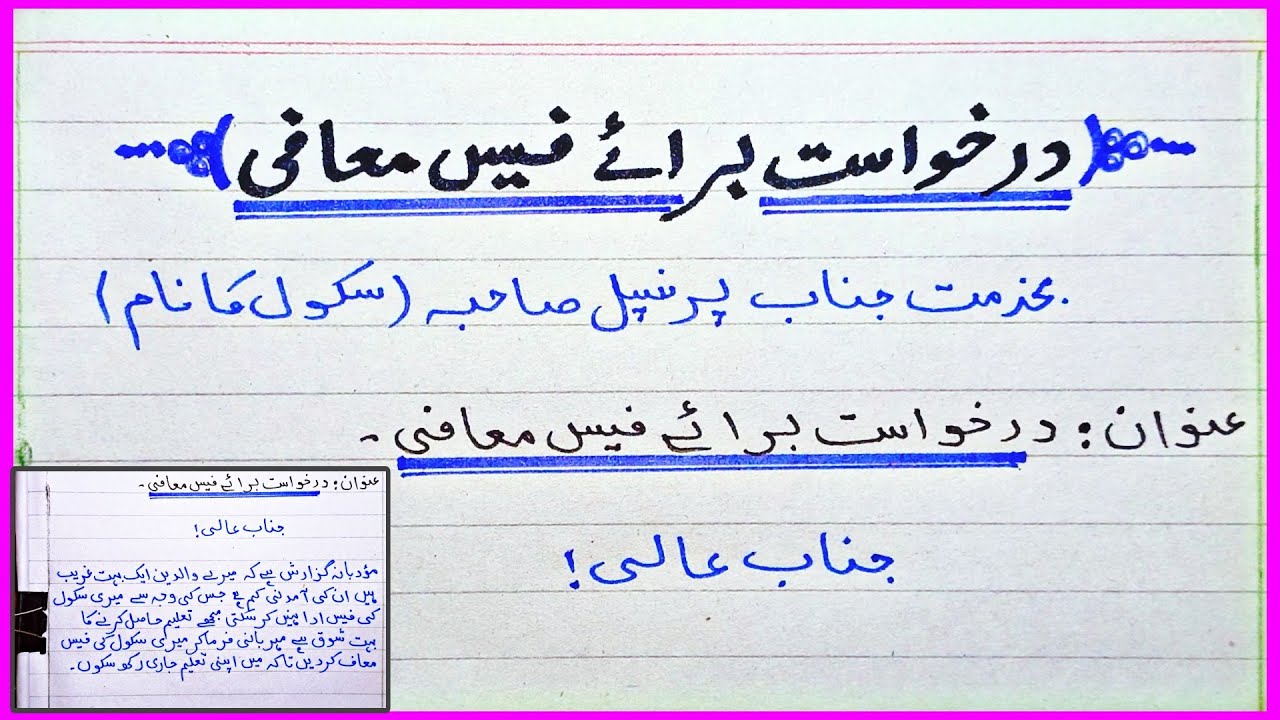 درخواست برائے فیس معافی
بخدمت جناب پرنسپل صاحبہ (سکول کا نام)
عنوان: درخواست برائے فیس معافی۔
جناب عالی!
عنوان: درخواست برائے فیس معافی۔
جناب عالی!
مؤدبانہ گزارش ہے کہ میرے والدین ایک بہت غریب
ہیں ان کی آمدنی کم ہے جس کی وجہ سے میری سکول
کی فیس ادا نہیں کر سکتی مجھے تعلیم حاصل کرنے کا
بہت شوق ہے مہربانی فرما کر میری سکول کی فیس
معاف کر دیں تاکہ میں اپنی تعلیم جاری رکھ سکوں۔